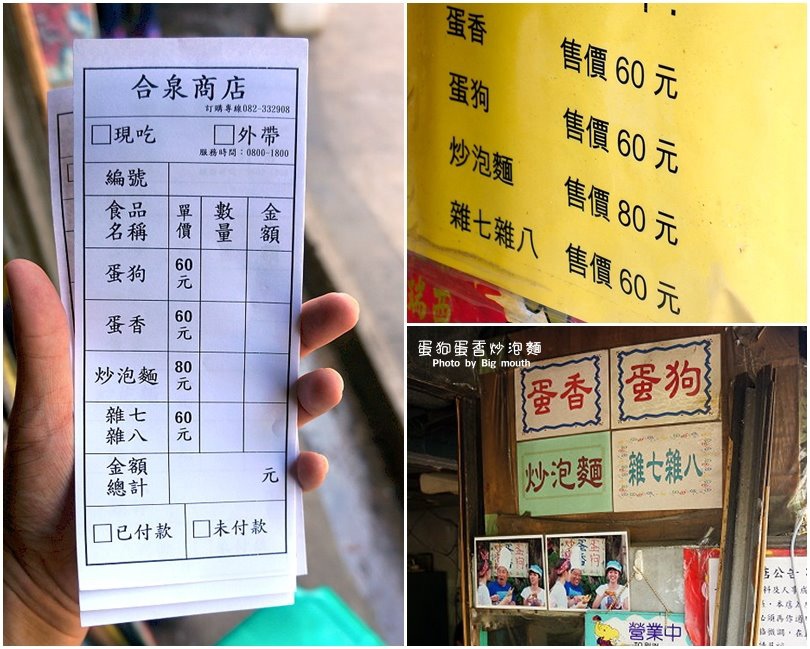 合泉商店
訂購專線082-332908
□現吃 □外帶
服務時間：0800-1800
編號
食品名稱 單價 數量 金額
蛋狗 60元
蛋香 60元
炒泡麵 80元
雜七雜八 60元
金額總計 元
□已付款 □未付款
蛋香 售價 60 元
蛋狗 售價 60 元
炒泡麵 售價 80 元
雜七雜八 售價 60 元
蛋狗蛋香炒泡麵
Photo by Big mouth
蛋香 蛋狗
炒泡麵 雜七雜八
營業中